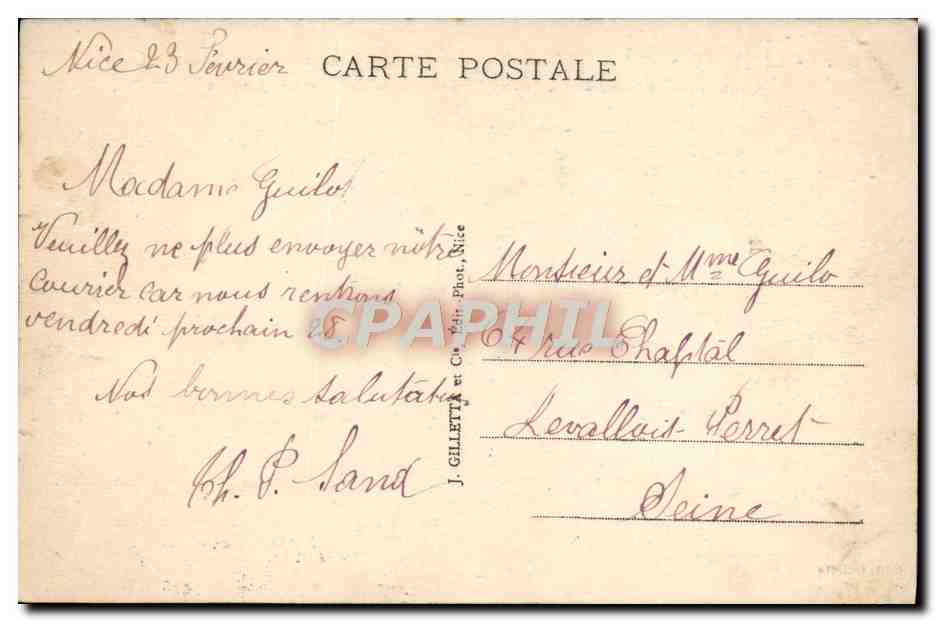 Nice 23 Février
CARTE POSTALE
Madame Guilo
Veuillez ne plus envoyer nôtre
courier car nous rentrons
vendredi prochain 28
Nos bonnes salutations
Ch. P. Sand
J. GILLETTA et Cie, Édit.-Phot., Nice
Monsieur et Mme Guilo
64 rue Chaptal
Levallois-Perret
Seine
CPAPHIL